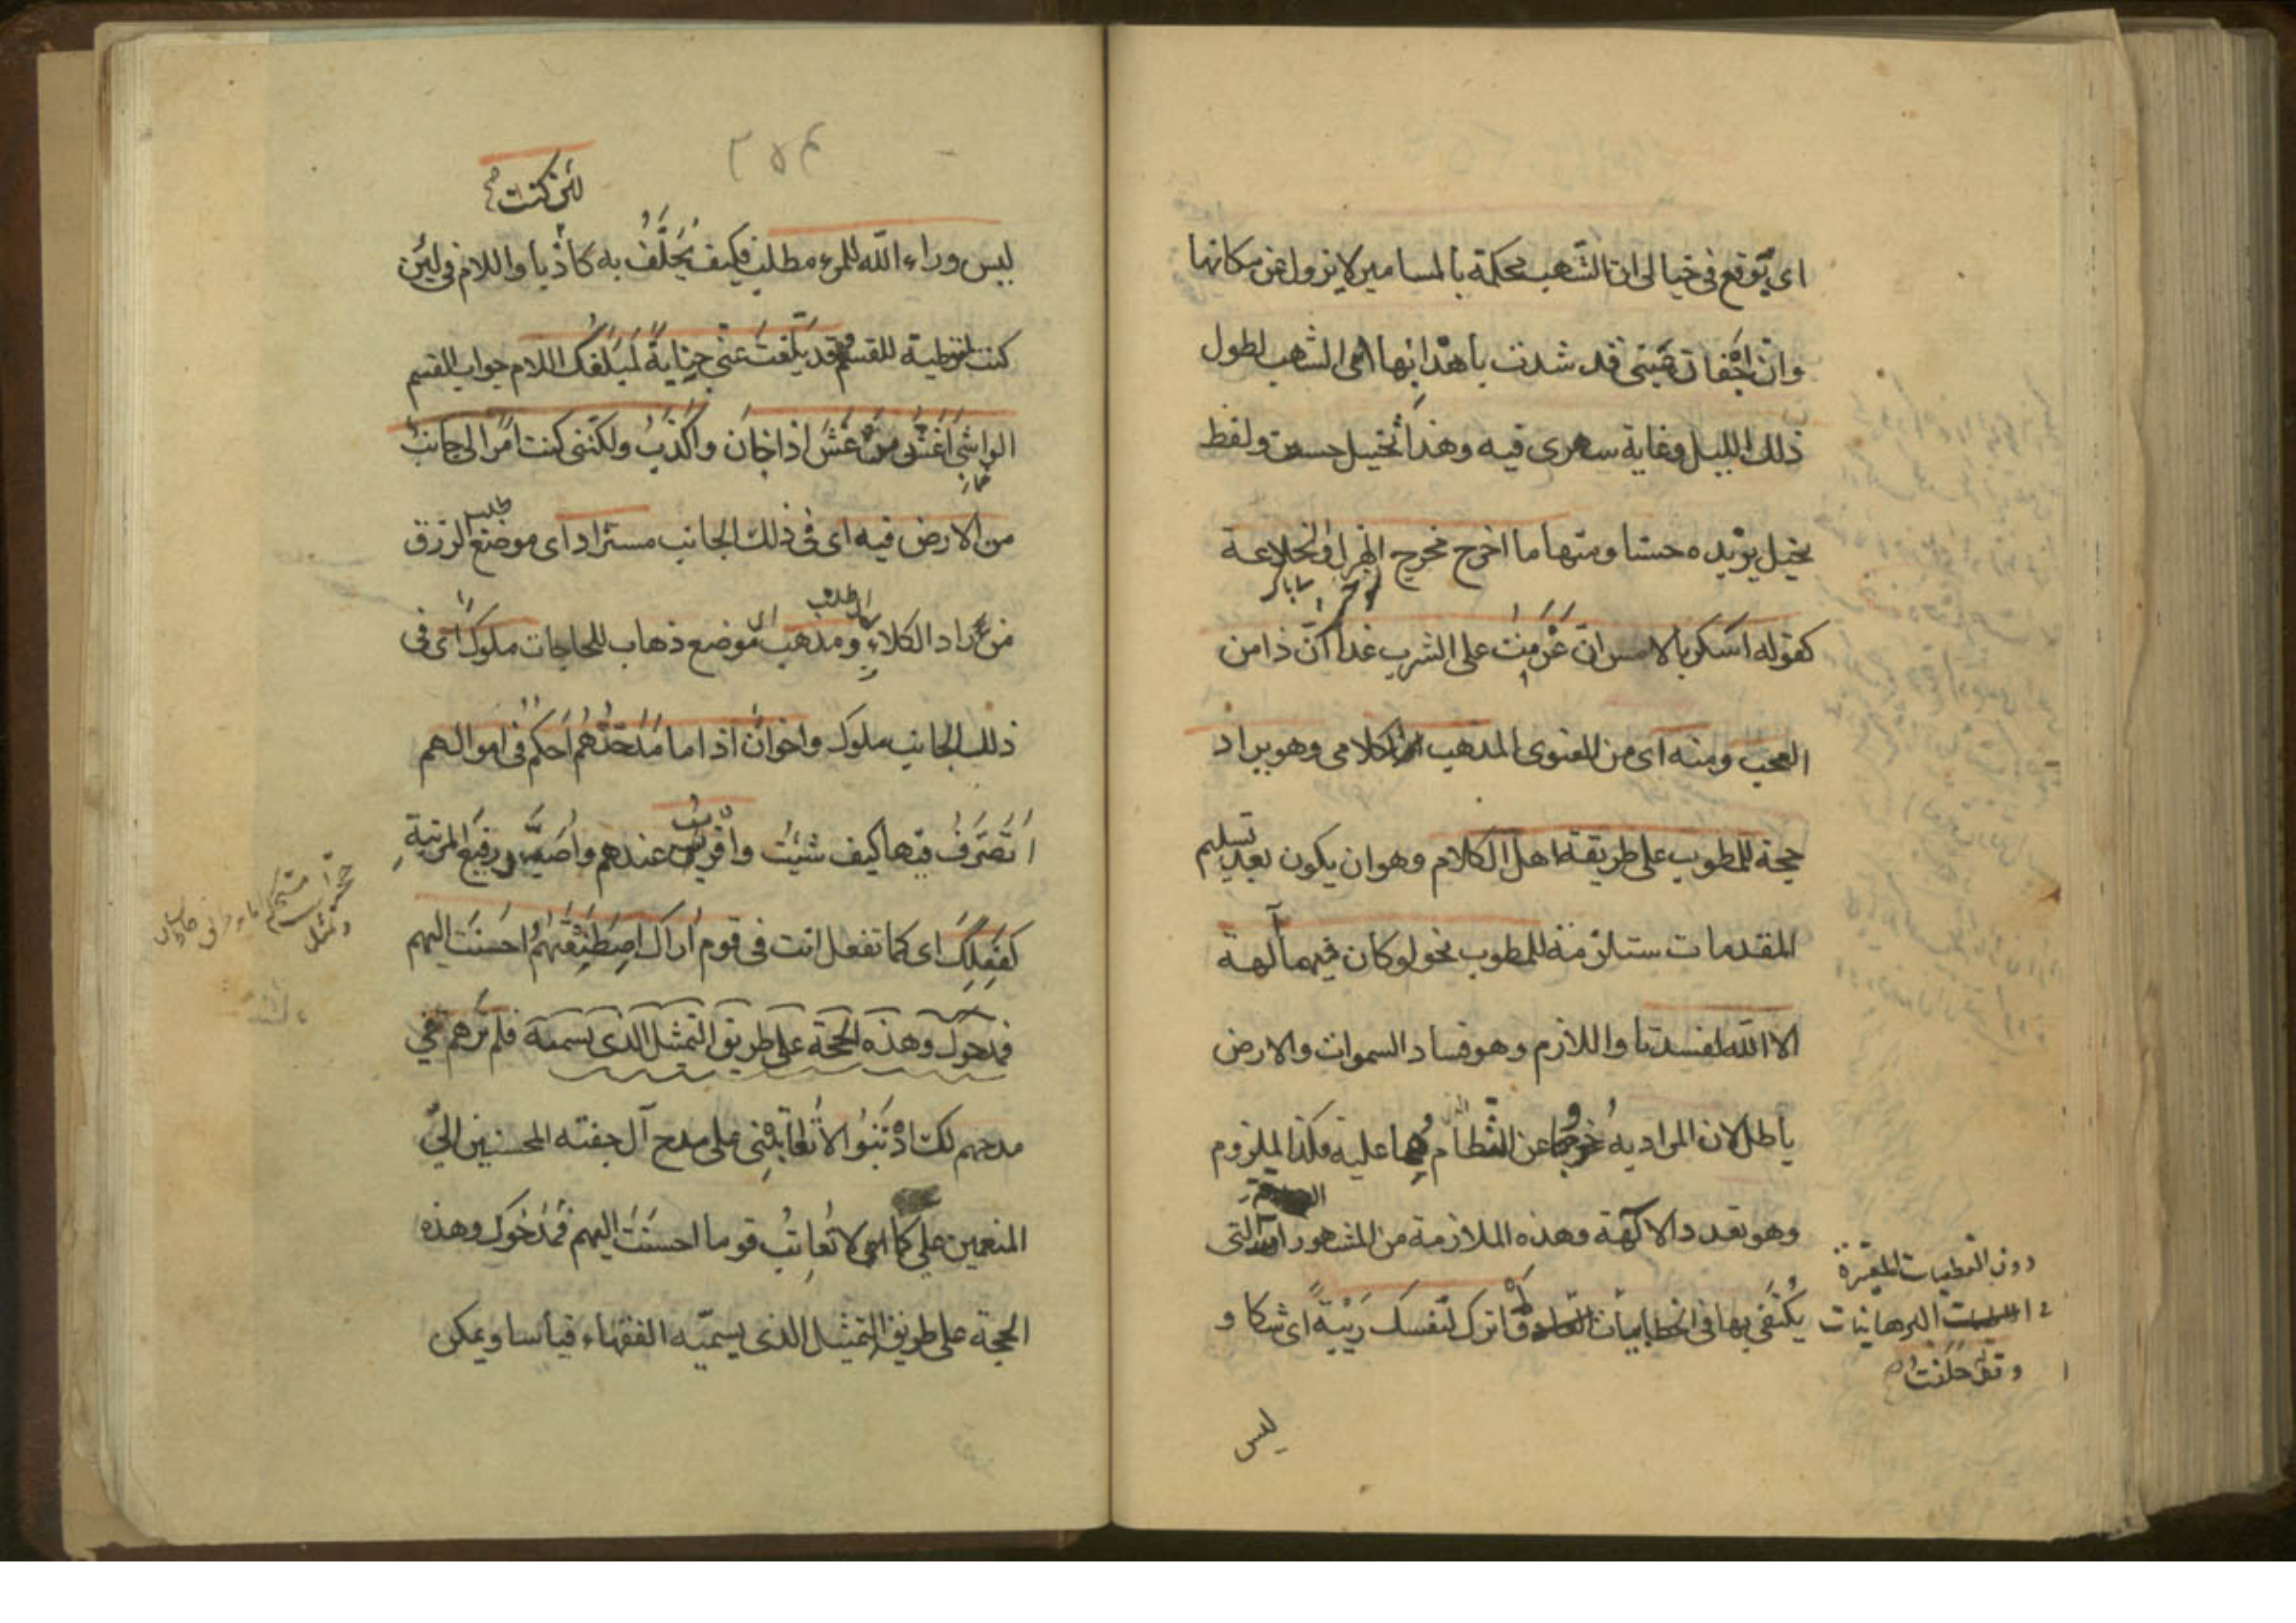 اى يوقع فى خيالى ان الشهب محكمة بالمسامير لا يزول عن مكانها
وان اجفان عينى قد شدت باهدابها الى الشهب لطول
ذلك الليل وغاية سهرى فيه وهذا تخييل حسن ولفظ
يخيل يزيده حسنا ومنها ما اخرج مخرج الهزل والخلاعة
كقوله اسكر بالامس ان عزمت على الشرب غدا ان ذا من
العجب ومنه اى من المعنوى المذهب الكلامى وهو يراد
حجة للمطوب على طريقة اهل الكلام وهو ان يكون بعد تسليم
المقدمات ستلزمة للمطوب نحو لو كان فيهما آلهة
الا الله لفسدتا واللازم وهو فساد السموات والارض
باطل لان المراد به خروجهما عن النظام هما عليه فكذا الملزوم
وهو تعدد الآلهة وهذه الملازمة من المشهورات التى
دون القطعيات المعتبرة
فى البرهانيات
يكتفى بها فى الخطابيات اترك لنفسك ريبة اى شكا و
وقوله حلفت
ليس
٣٥٤
لئن كنت صح
ليس وراء الله للمرء مطلب فكيف يحلف به كاذبا واللام فى لئن
كنت لتوطية للقسم قد بلغت عنى جناية لمبلغك اللام جواب القسم
الواشى اغش من غش اذا خان واكذب ولكننى كنت امرا لى جانب
من الارض فيه اى فى ذلك الجانب مستراد اى موضع طلب الرزق
من راد الكلاء ومذهب اى موضع ذهاب للحاجات ملوك اى فى
ذلك الجانب ملوك واخوان اذا ما مدحتهم احكم فى اموالهم
اتصرف فيها كيف شئت واقرب عندهم واصير رفيع المرتبة
كفعلك اى كما تفعل انت فى قوم اراك اصطنعتهم احسنت اليهم
فمدحوك وهذه الحجة على طريق التمثل الذى يسمنه فلم ترهم فى
مدحهم لك اذنبوا لا تعاتبنى على مدح آل جفنه المحسنين الى
المنعمين على كما لا تعاتب قوما احسنت اليهم فمدحوك وهذه
الحجة على طريق التمثيل الذى يسميه الفقهاء قياسا ويمكن